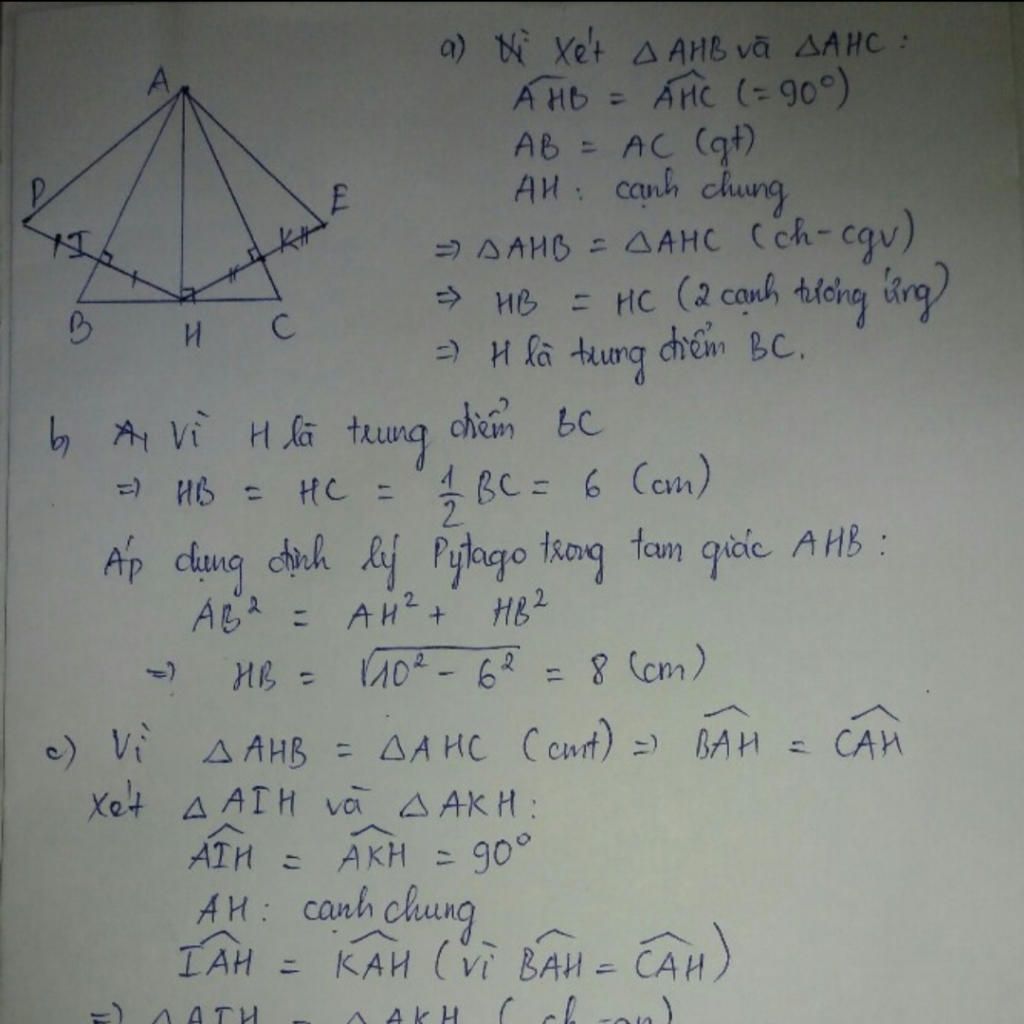 A
D
E
I
K
B
H
C
a) Xét △AHB và △AHC :
$\widehat{AHB}$ = $\widehat{AHC}$ (= 90°)
AB = AC (gt)
AH : cạnh chung
⇒ △AHB = △AHC (ch-cgv)
⇒ HB = HC (2 cạnh tương ứng)
⇒ H là trung điểm BC.
b) Vì H là trung điểm BC
⇒ HB = HC = $\frac{1}{2}$ BC = 6 (cm)
Áp dụng định lý Pytago trong tam giác AHB :
AB² = AH² + HB²
⇒ HB = $\sqrt{10² - 6²}$ = 8 (cm)
c) Vì △AHB = △AHC (cmt) ⇒ $\widehat{BAH}$ = $\widehat{CAH}$
Xét △AIH và △AKH :
$\widehat{AIH}$ = $\widehat{AKH}$ = 90°
AH : cạnh chung
$\widehat{IAH}$ = $\widehat{KAH}$ (vì $\widehat{BAH}$ = $\widehat{CAH}$)
⇒ △AIH = △AKH (ch-gn)